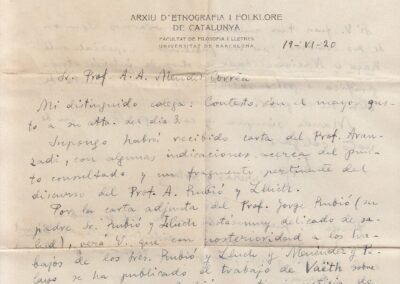 ARXIU D'ETNOGRAFIA I FOLKLORE
DE CATALUNYA
FACULTAT DE FILOSOFIA I LLETRES
UNIVERSITAT DE BARCELONA
19-VI-20
Sr. Prof. A. A. Mendes Corrêa
Mi distinguido colega: Contesto con el mayor gus-
to a su atta. del día 8.
Supongo habrá recibido carta del Prof. Aran-
zadi, con algunas indicaciones acerca del pun-
to consultado y un fragmento pertinente del
discurso del Prof. A. Rubió y Lluch.
Por la carta adjunta del Prof. Jorge Rubió (su
padre Sr. Rubió y Lluch está muy delicado de sa-
lud), verá V. que con posterioridad a los tra-
bajos de los Sres. Rubió y Lluch y Menéndez y Pe-
layo se ha publicado el trabajo de Vaeth sobre